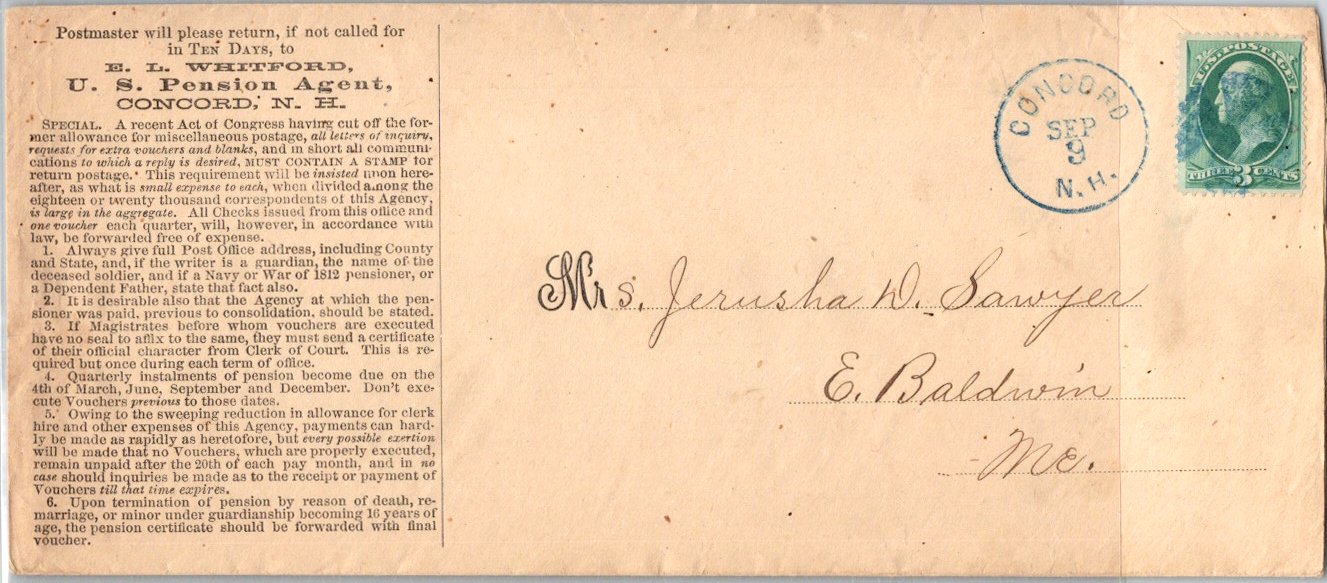 Postmaster will please return, if not called for
in TEN DAYS, to
E. L. WHITFORD,
U. S. Pension Agent,
CONCORD, N. H.
SPECIAL. A recent Act of Congress having cut off the for-
mer allowance for miscellaneous postage, all letters of inquiry,
requests for extra vouchers and blanks, and in short all communi-
cations to which a reply is desired, MUST CONTAIN A STAMP for
return postage. This requirement will be insisted upon here-
after, as what is small expense to each, when divided among the
eighteen or twenty thousand correspondents of this Agency,
is large in the aggregate. All Checks issued from this office and
one voucher each quarter, will, however, in accordance with
law, be forwarded free of expense.
1. Always give full Post Office address, including County
and State, and, if the writer is a guardian, the name of the
deceased soldier, and if a Navy or War of 1812 pensioner, or
a Dependent Father, state that fact also.
2. It is desirable also that the Agency at which the pen-
sioner was paid, previous to consolidation, should be stated.
3. If Magistrates before whom vouchers are executed
have no seal to affix to the same, they must send a certificate
of their official character from Clerk of Court. This is re-
quired but once during each term of office.
4. Quarterly instalments of pension become due on the
4th of March, June, September and December. Don't exe-
cute Vouchers previous to those dates.
5. Owing to the sweeping reduction in allowance for clerk
hire and other expenses of this Agency, payments can hard-
ly be made as rapidly as heretofore, but every possible exertion
will be made that no Vouchers, which are properly executed,
remain unpaid after the 20th of each pay month, and in no
case should inquiries be made as to the receipt or payment of
Vouchers till that time expires.
6. Upon termination of pension by reason of death, re-
marriage, or minor under guardianship becoming 16 years of
age, the pension certificate should be forwarded with final
voucher.
CONCORD
SEP
9
N.H.
U.S. POSTAGE
THREE 3 CENTS
Mrs. Jerusha D. Sawyer
E. Baldwin
Me.